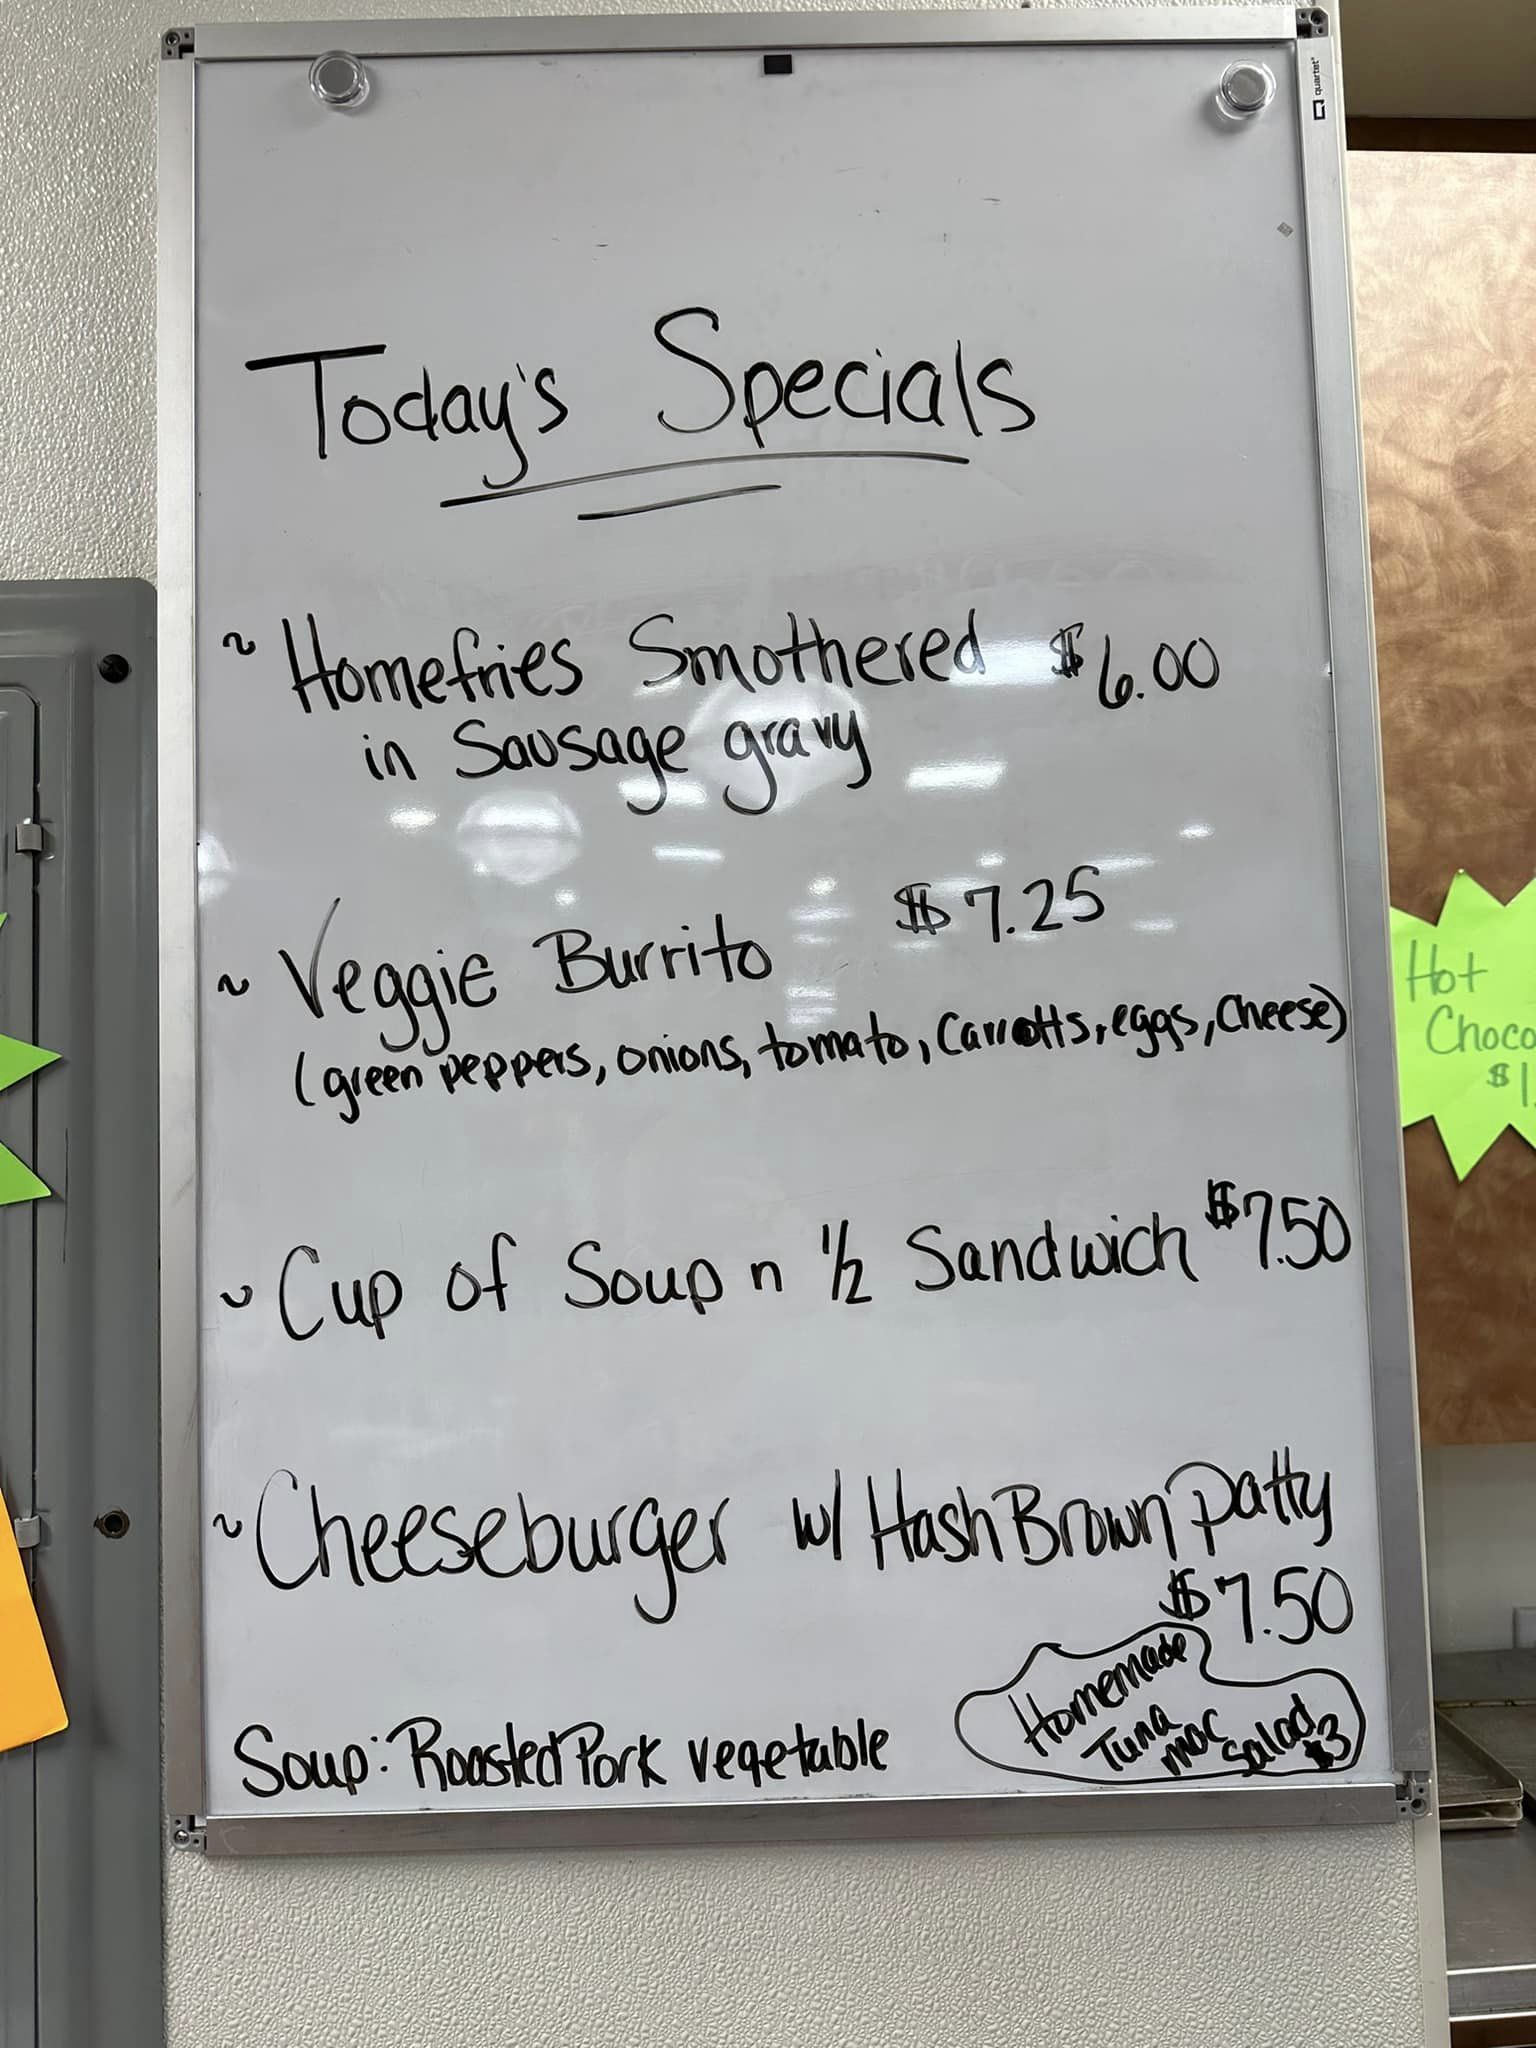 quartet
Today's Specials
~ Homefries Smothered $6.00
in Sausage gravy
~ Veggie Burrito $7.25
(green peppers, onions, tomato, Carrotts, eggs, Cheese)
~ Cup of Soup n 1/2 Sandwich $7.50
~ Cheeseburger w/ Hash Brown Patty
$7.50
Soup: Roasted Pork vegetable
Homemade
Tuna
mac
Salad
$3
Hot
Choco
$1.